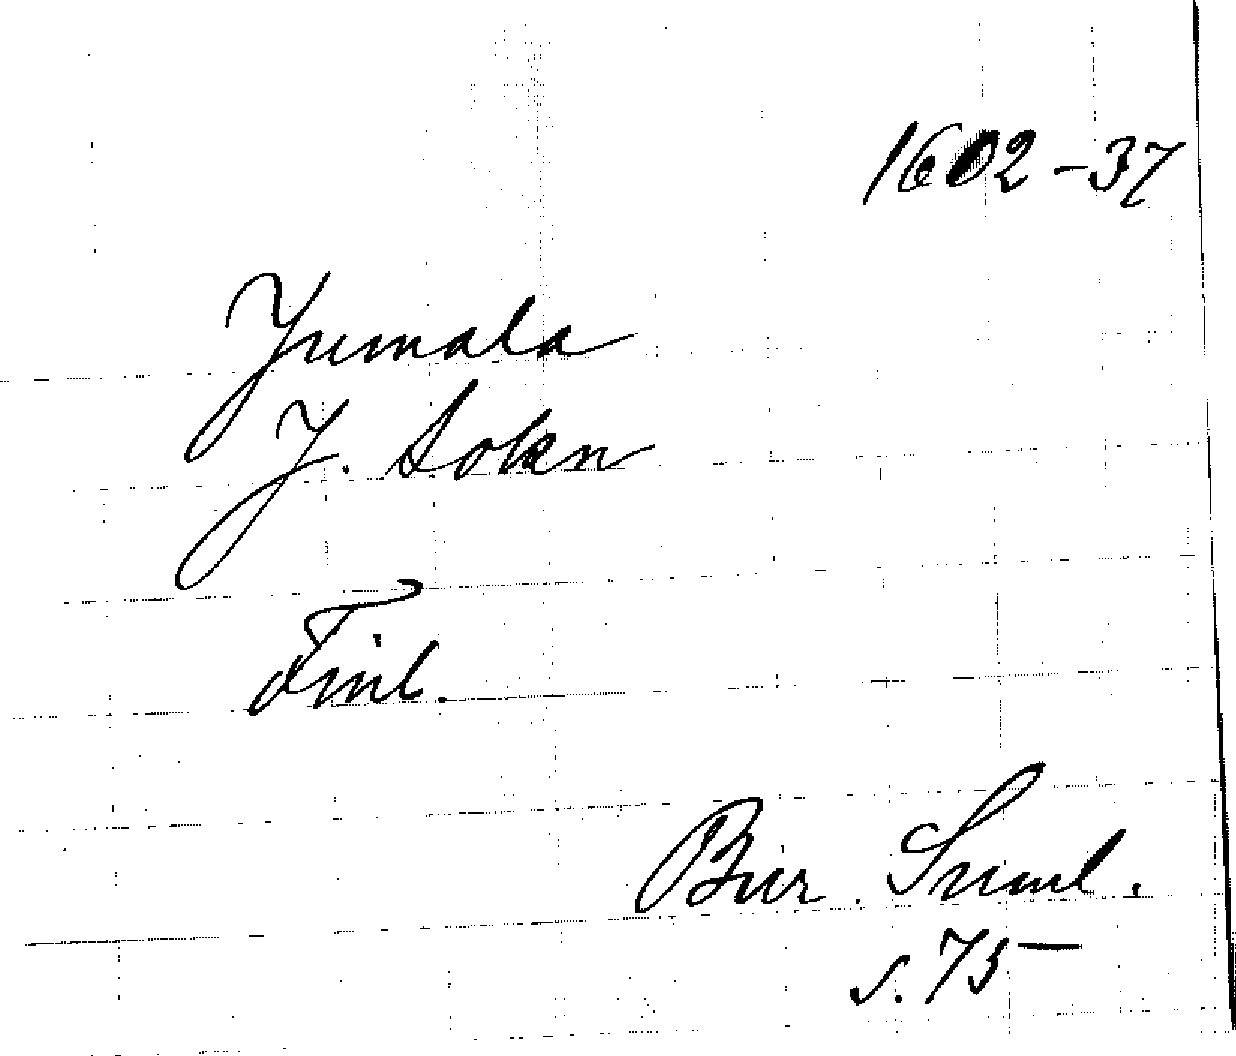 1602-37
Jumala
J. Sokn
Finl.
Bur. Suml.
s. 75